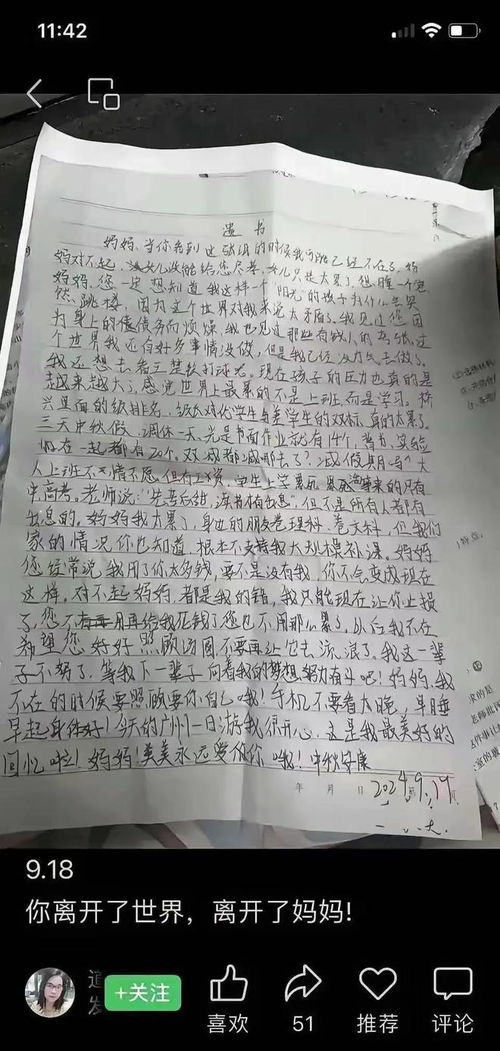 11:42
遗书
妈妈,当你看到这张纸的时候我可能已经不在了,妈
妈对不起,女儿没能给您尽孝,女儿只是太累了,想睡一个觉
妈妈,您一定想知道我这样一个阳光的孩子为什么会突
然跳楼,因为这个世界对我来说太矛盾了,我见过您因
为身上的债务而烦恼 我也见过那些有钱人的 这
个世界我还有好多事情没做,但是我已经没力气去做了.
我还想去看王楚钦打球呢,现在孩子的压力也真的是
越来越大了,感觉世界上最累的不是上班而是学习,
三天中秋假,调休一天,光是书面作业就有14个,背书,实验
加在一起都有20个,双减都减哪去了?减假期吗?大
人上班不 情不愿,但有工资,学生上学累 等来的只有
中高考,老师说:"先苦后甜,读书才有出息",但不是所有人都有
出息的,妈妈我太累了,身边的朋友卷理科,卷文科,但我们
家的情况你也知道,根本不支持我大规模补课,妈妈
您经常说,我用了你太多钱,要不是没有我,你不会变成现在
这样,对不起妈妈,都是我的错,我只能现在让你止损
了,您不用再给我花钱了您也不用那么累了,以后我不在
希望您好好照顾汤圆不要再让它去流浪了,我这一辈
子不努了,等我下一辈子向着我的梦想努力奋斗吧!妈妈,我
不在的时候要照顾好你自己哦!手机不要看太晚,早睡
早起身体好!今天的广州一日游我很开心,这是我最美好的
回忆啦!妈妈!美美永远爱你哦!中秋安康
年 月 日 2024.9.17
9.18
你离开了世界，离开了妈妈!
+关注
喜欢
51
推荐
评论